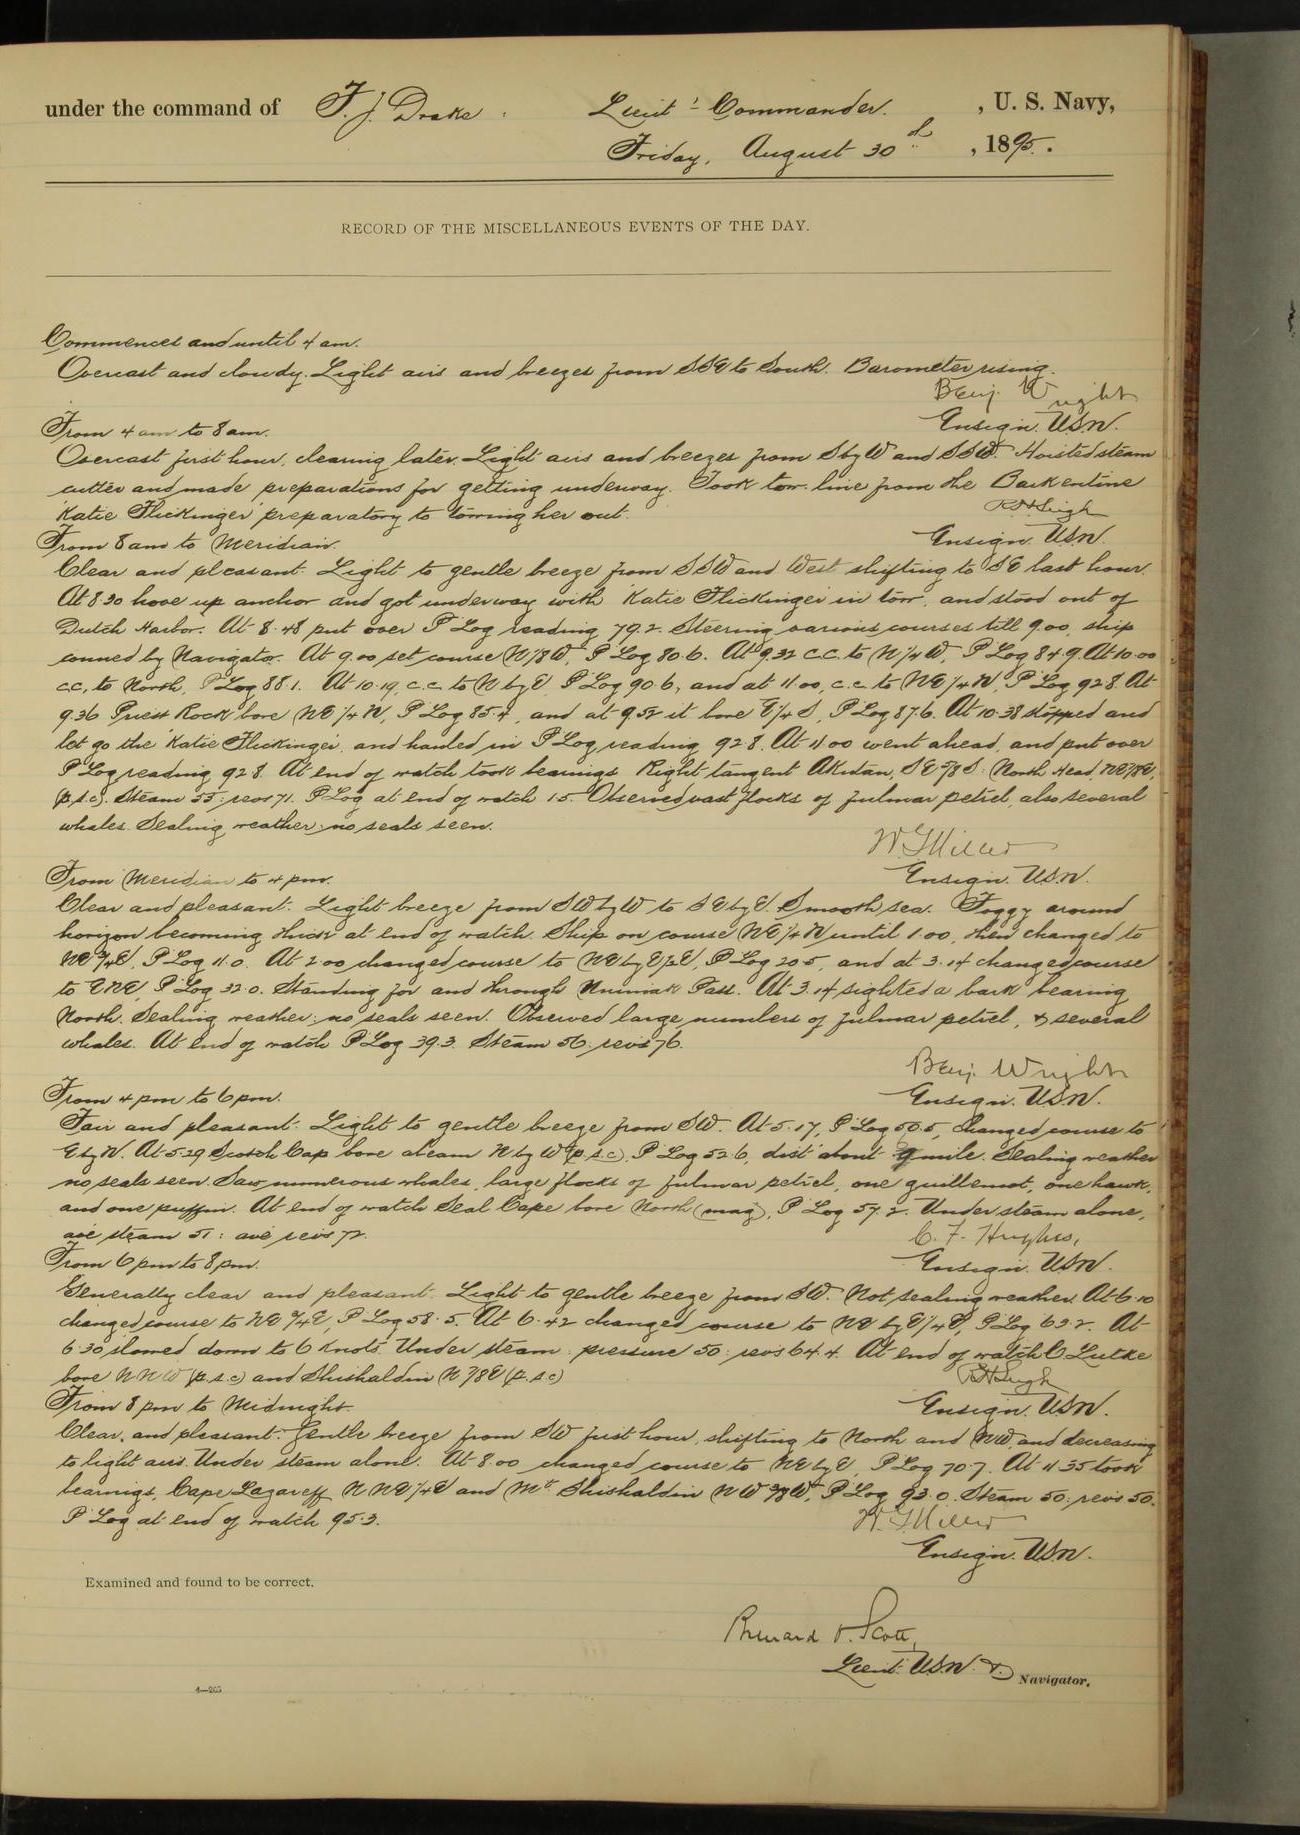 under the command of F. J. Drake, Lieut-Commander, U. S. Navy,
Friday, August 30th, 1895.
RECORD OF THE MISCELLANEOUS EVENTS OF THE DAY.
Commences and until 4 am.
Overcast and cloudy. Light airs and breezes from SSE to South. Barometer rising.
Benj. Wright
Ensign. U.S.N.
From 4 am to 8 am.
Overcast first hour, clearing later. Light airs and breezes from SbyW and SSW. Hoisted steam
cutter and made preparations for getting underway. Took tow line from the Barkentine
Katie Flickinger preparatory to towing her out.
R H Leigh
Ensign. U.S.N.
From 8 am to Meridian.
Clear and pleasant. Light to gentle breeze from SSW and West shifting to SE last hour.
At 8.30 hove up anchor and got underway with Katie Flickinger in tow, and stood out of
Dutch Harbor. At 8.48 put over P Log reading 79.2. Steering various courses till 9.00, ship
conned by Navigator. At 9.00 set course N1/8W, P Log 80.6. At 9.32 c.c. to N1/4W, P Log 84.9. At 10.00
c.c. to North, P Log 88.1. At 10.19, c.c. to NbyE, P Log 90.6, and at 11.00, c.c. to NE1/4N, P Log 92.8. At
9.36 Priest Rock bore NE1/4N, P Log 85.4, and at 9.52 it bore E1/4S, P Log 87.6. At 10.38 stopped and
let go the Katie Flickinger, and hauled in P Log reading 92.8. At 11.00 went ahead, and put over
P Log reading 92.8. At end of watch took bearings Right tangent Akutan, SE 5/8 S: North Head, NE7/8E,
(p.s.c). Steam 55: revs 71. P Log at end of watch 1.5. Observed vast flocks of fulmar petrel, also several
whales. Sealing weather: no seals seen.
W. G. Miller
Ensign. U.S.N.
From Meridian to 4 pm.
Clear and pleasant. Light breeze from SWbyW to SEbyE. Smooth sea. Foggy around
horizon becoming thick at end of watch. Ship on course NE1/4N until 1.00, then changed to
NE3/4E, P Log 11.0. At 2.00 changed course to NEbyE1/2E, P Log 20.5, and at 3.14 changed course
to ENE, P Log 32.0. Standing for and through Unimak Pass. At 3.14 sighted a bark bearing
North. Sealing weather: no seals seen. Observed large numbers of fulmar petrel, & several
whales. At end of watch P Log 39.3. Steam 56: revs 76.
Benj. Wright
Ensign. U.S.N.
From 4 pm to 6 pm.
Fair and pleasant. Light to gentle breeze from SW. At 5.17, P Log 50.5, changed course to
EbyN. At 5.29 Scotch Cap bore abeam NbyW (p.s.c). P Log 52.6, dist about mile. Sealing weather
no seals seen. Saw numerous whales, large flocks of fulmar petrel, one guillemot, one hawk,
and one puffin. At end of watch Seal Cape bore North (mag), P Log 57.2. Under steam alone,
ave steam 51: ave revs 72.
C. F. Hughes,
Ensign. U.S.N.
From 6 pm to 8 pm.
Generally clear and pleasant. Light to gentle breeze from SW. Not sealing weather. At 6.10
changed course to NE3/4E, P Log 58.5. At 6.42 changed course to NEbyE1/4E, P Log 63.2. At
6.30 slowed down to 6 knots. Under steam: pressure 50: revs 64.4. At end of watch C Lutke
bore NNW (p.s.c) and Shishaldin N7/8E (p.s.c)
R H Leigh
Ensign. U.S.N.
From 8 pm to Midnight.
Clear, and pleasant. Gentle breeze from SW first hour, shifting to North and NW, and decreasing
to light airs. Under steam alone. At 8.00 changed course to NEbyE, P Log 70.7. At 11.35 took
bearings, Cape Lazareff NNE1/4E and Mt. Shishaldin NW W, P Log 93.0. Steam 50: revs 50.
P Log at end of watch 95.3.
W. G. Miller
Ensign. U.S.N.
Examined and found to be correct.
Bernard O. Scott,
Lieut. U.S.N. & Navigator.